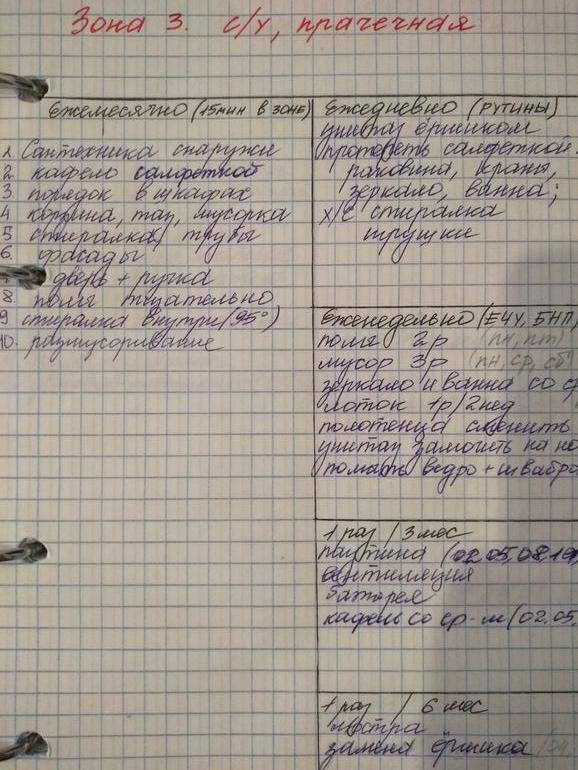 Зона 3. с/у, прачечная
Ежемесячно (15мин в зоне)
1. Сантехника снаружи
2. кафель салфеткой
3. порядок в шкафах
4 корзина, таз, мусорка
5 стиралка, трубы
6. фасады
дверь + ручка
8. полы тщательно
9 стиралка внутри (95°)
10. размусоривание
Ежедневно (рутины)
унитаз ёршиком
протереть салфеткой:
раковина, краны,
зеркало, ванна;
х/с стиралка
трущки
Еженедельно (ЕЧУ, БНП)
полы 2р (пн, пт)
мусор 3р (пн, ср, сб)
зеркало и ванна со ср
лоток 1р/2нед
полотенца сменить
унитаз замочить на но
помыть ведро + швабро
1 раз / 3 мес
паутина (02.05.08.
вентиляция
батарея
кафель со ср-м (02.05.
1 раз / 6 мес
люстра
замена ёршика